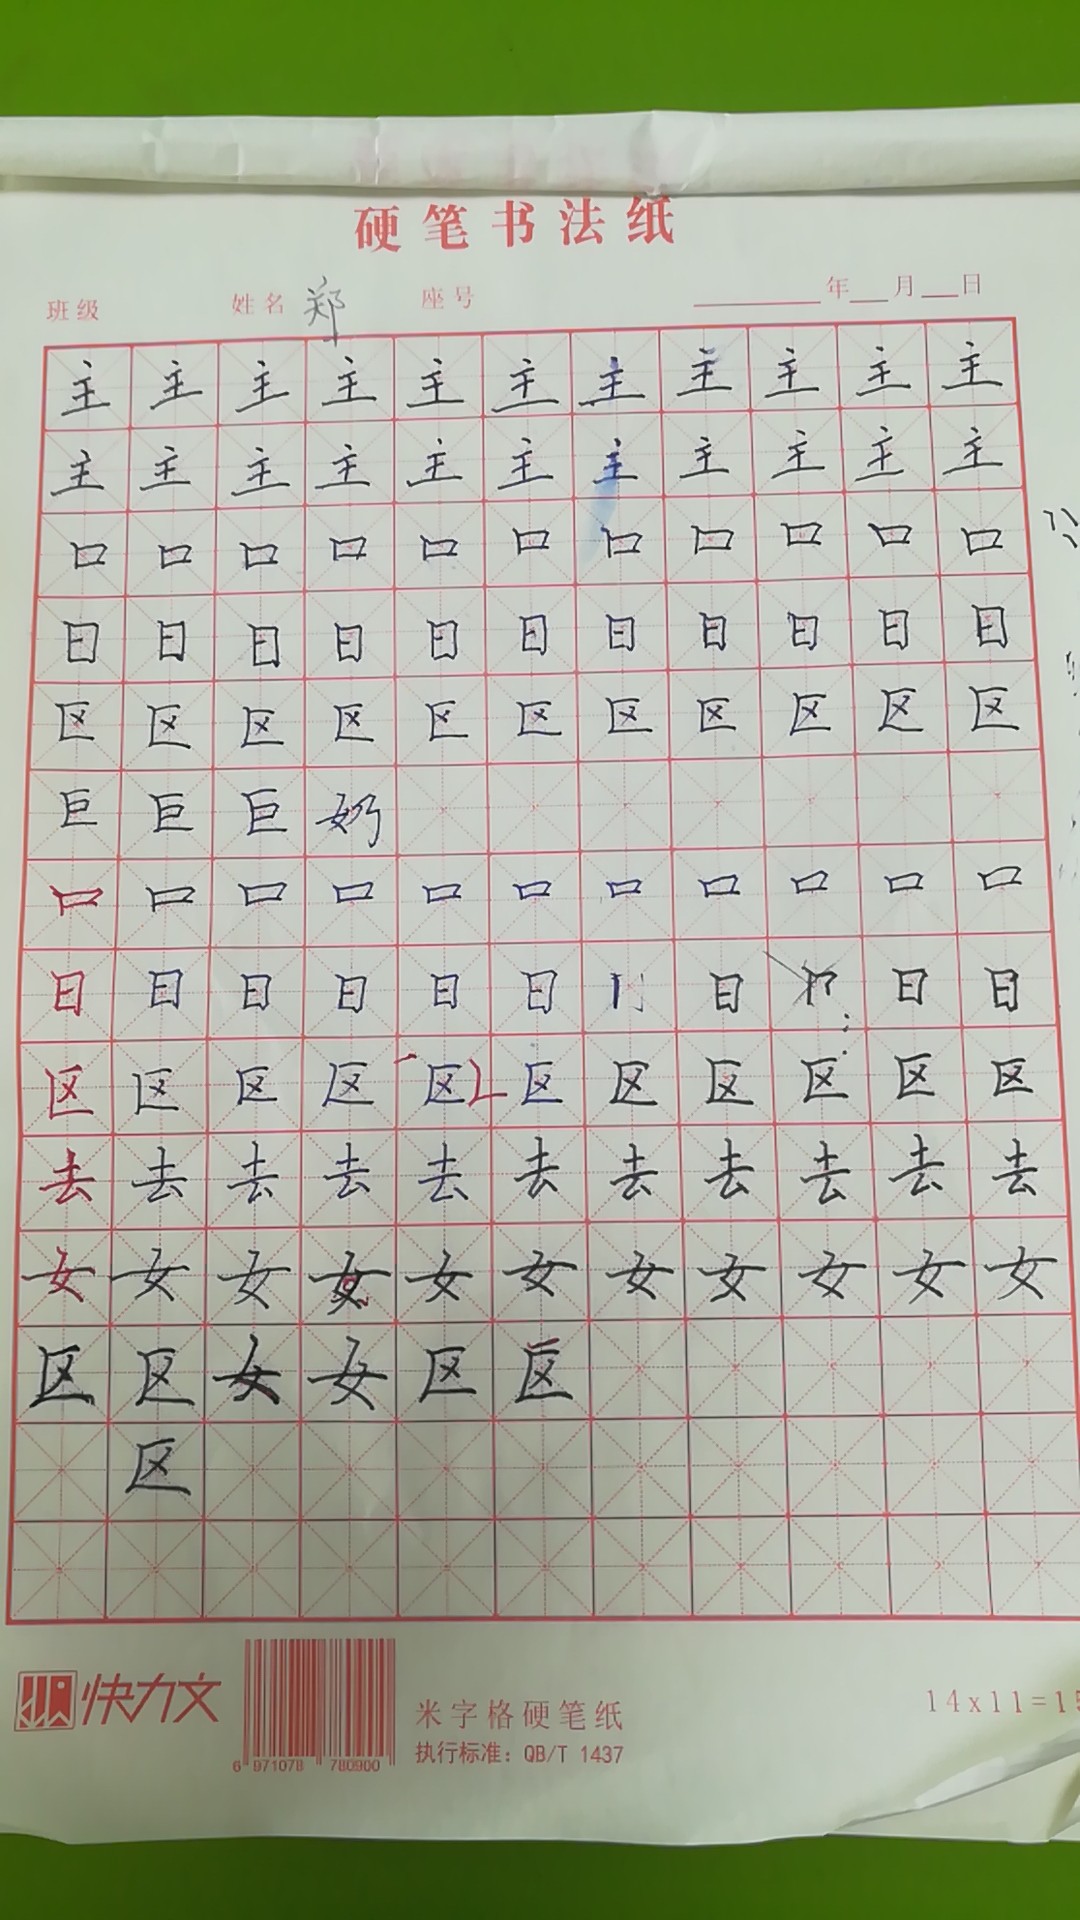 硬笔书法纸
班级 姓名 郑 座号 年 月 日
主主主主主主主主主主主
主主主主主主主主主主主
口口口口口口口口口口口
日日日日日日日日日日日
区区区区区区区区区区区
巨巨巨奶
口口口口口口口口口口口
日日日日日日日日日
区区区区区区区区区区区
去去去去去去去去去去去
女女女女女女女女女女女
区区女女区区
区
快力文
6 971078 780900
米字格硬笔纸
执行标准：QB/T 1437
14x11=15